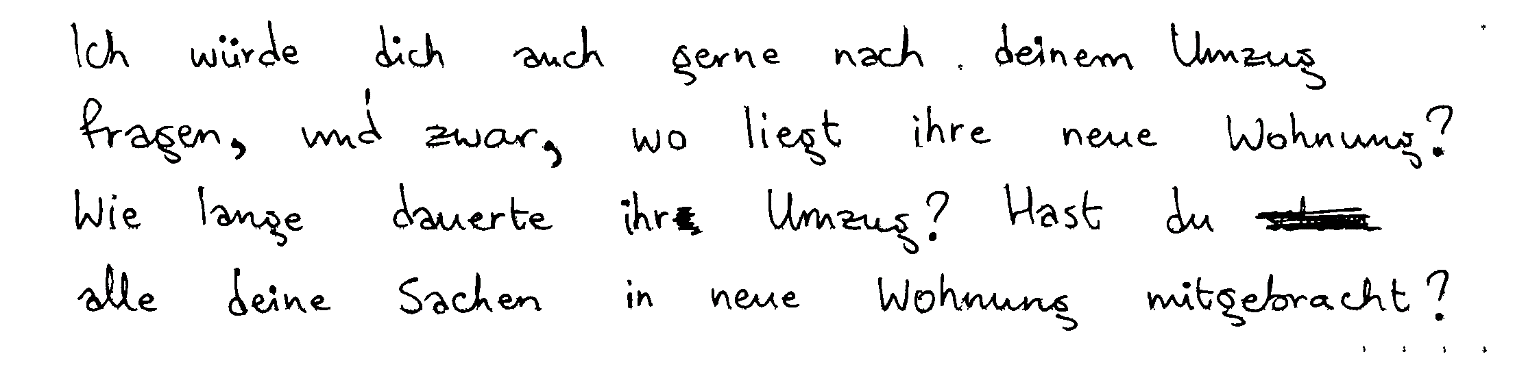 Ich würde dich auch gerne nach deinem Umzug
fragen, und zwar, wo liegt ihre neue Wohnung?
Wie lange dauerte ihr Umzug? Hast du
alle deine Sachen in neue Wohnung mitgebracht?